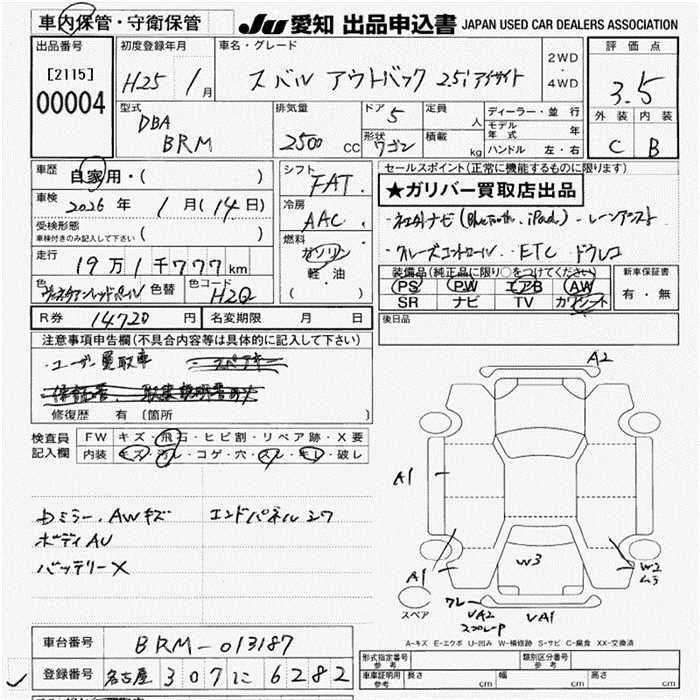 車内保管・守衛保管
JU 愛知 出品申込書 JAPAN USED CAR DEALERS ASSOCIATION
出品番号
[2115]
00004
初度登録年月
H25 / 1月
車名・グレード
スバル アウトバック 2.5i アイサイト
2WD
・
4WD
評価点
3.5
外装 内装
C B
型式
DBA
BRM
排気量
2500 CC
ドア 5
形状 ワゴン
定員 人
積載 kg
ディーラー・並行
モデル年式 年
ハンドル 左・右
車歴 自家用・( )
車検 2026年 1月(14日)
受検形態
車検付きのみ記入して下さい ( )
走行 19万1千777km
色 ヴェネチアンレッドパール 色替 色コード H2Q
シフト
FAT
冷房
AAC
燃料
ガソリン
軽・油
( )
セールスポイント(正常に機能するものに限ります)
★ガリバー買取店出品
・ネェ外ナビ(Bluetooth、iPod)・レーンアシスト
・クルーズコントロール・ETC・ドラレコ
装備品(純正品に限り○をつけてください)
PS PW エアB AW
SR ナビ TV カワシート
新車保証書
有・無
R券 14720円 名変期限 月 日
後日品
注意事項申告欄(不具合内容等は具体的に記入して下さい)
・ユーザー買取車
修復歴 有 〔箇所 〕
検査員記入欄
FW キズ・飛石・ヒビ割・リペア跡・X要
内装 キズ・汚レ・コゲ・穴・スレ・キレ・破レ
ミラー、AWキズ エンドパネルシワ
ボディAU
バッテリーX
A2
A1
A1
W3
W2
ムラ
ワレ
VA2
VA1
スペア
A-キズ E-エクボ U-凹み W-補修跡 S-サビ C-腐食 XX-交換済
車台番号 BRM-013187
登録番号 名古屋 307 に 6282
形式指定番号
参考
類別区分番号
参考
車庫証明用
参考
長さ cm 幅 cm 高さ cm